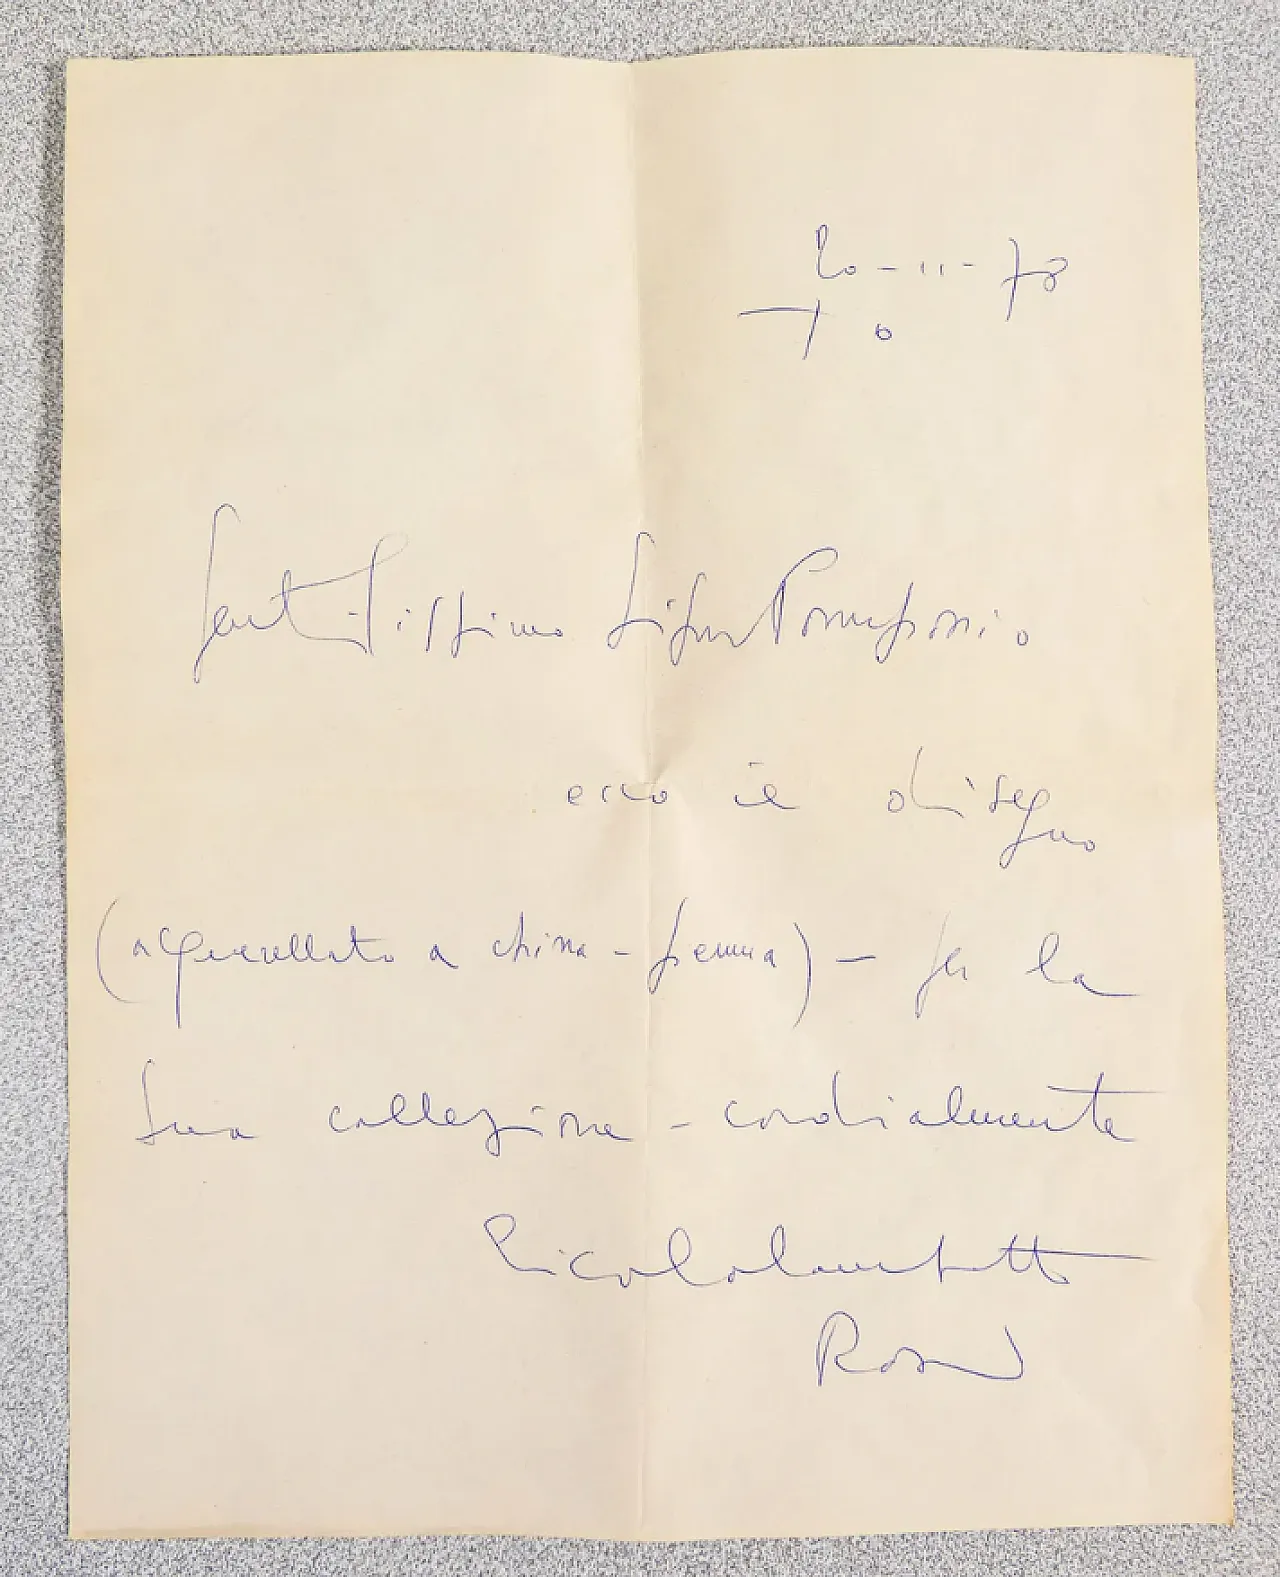 20-11-78
To
Gentilissimo Signor Pomponio
ecco il disegno
(acquerellato a china-penna) - per la
Sua collezione - cordialmente
Rossi